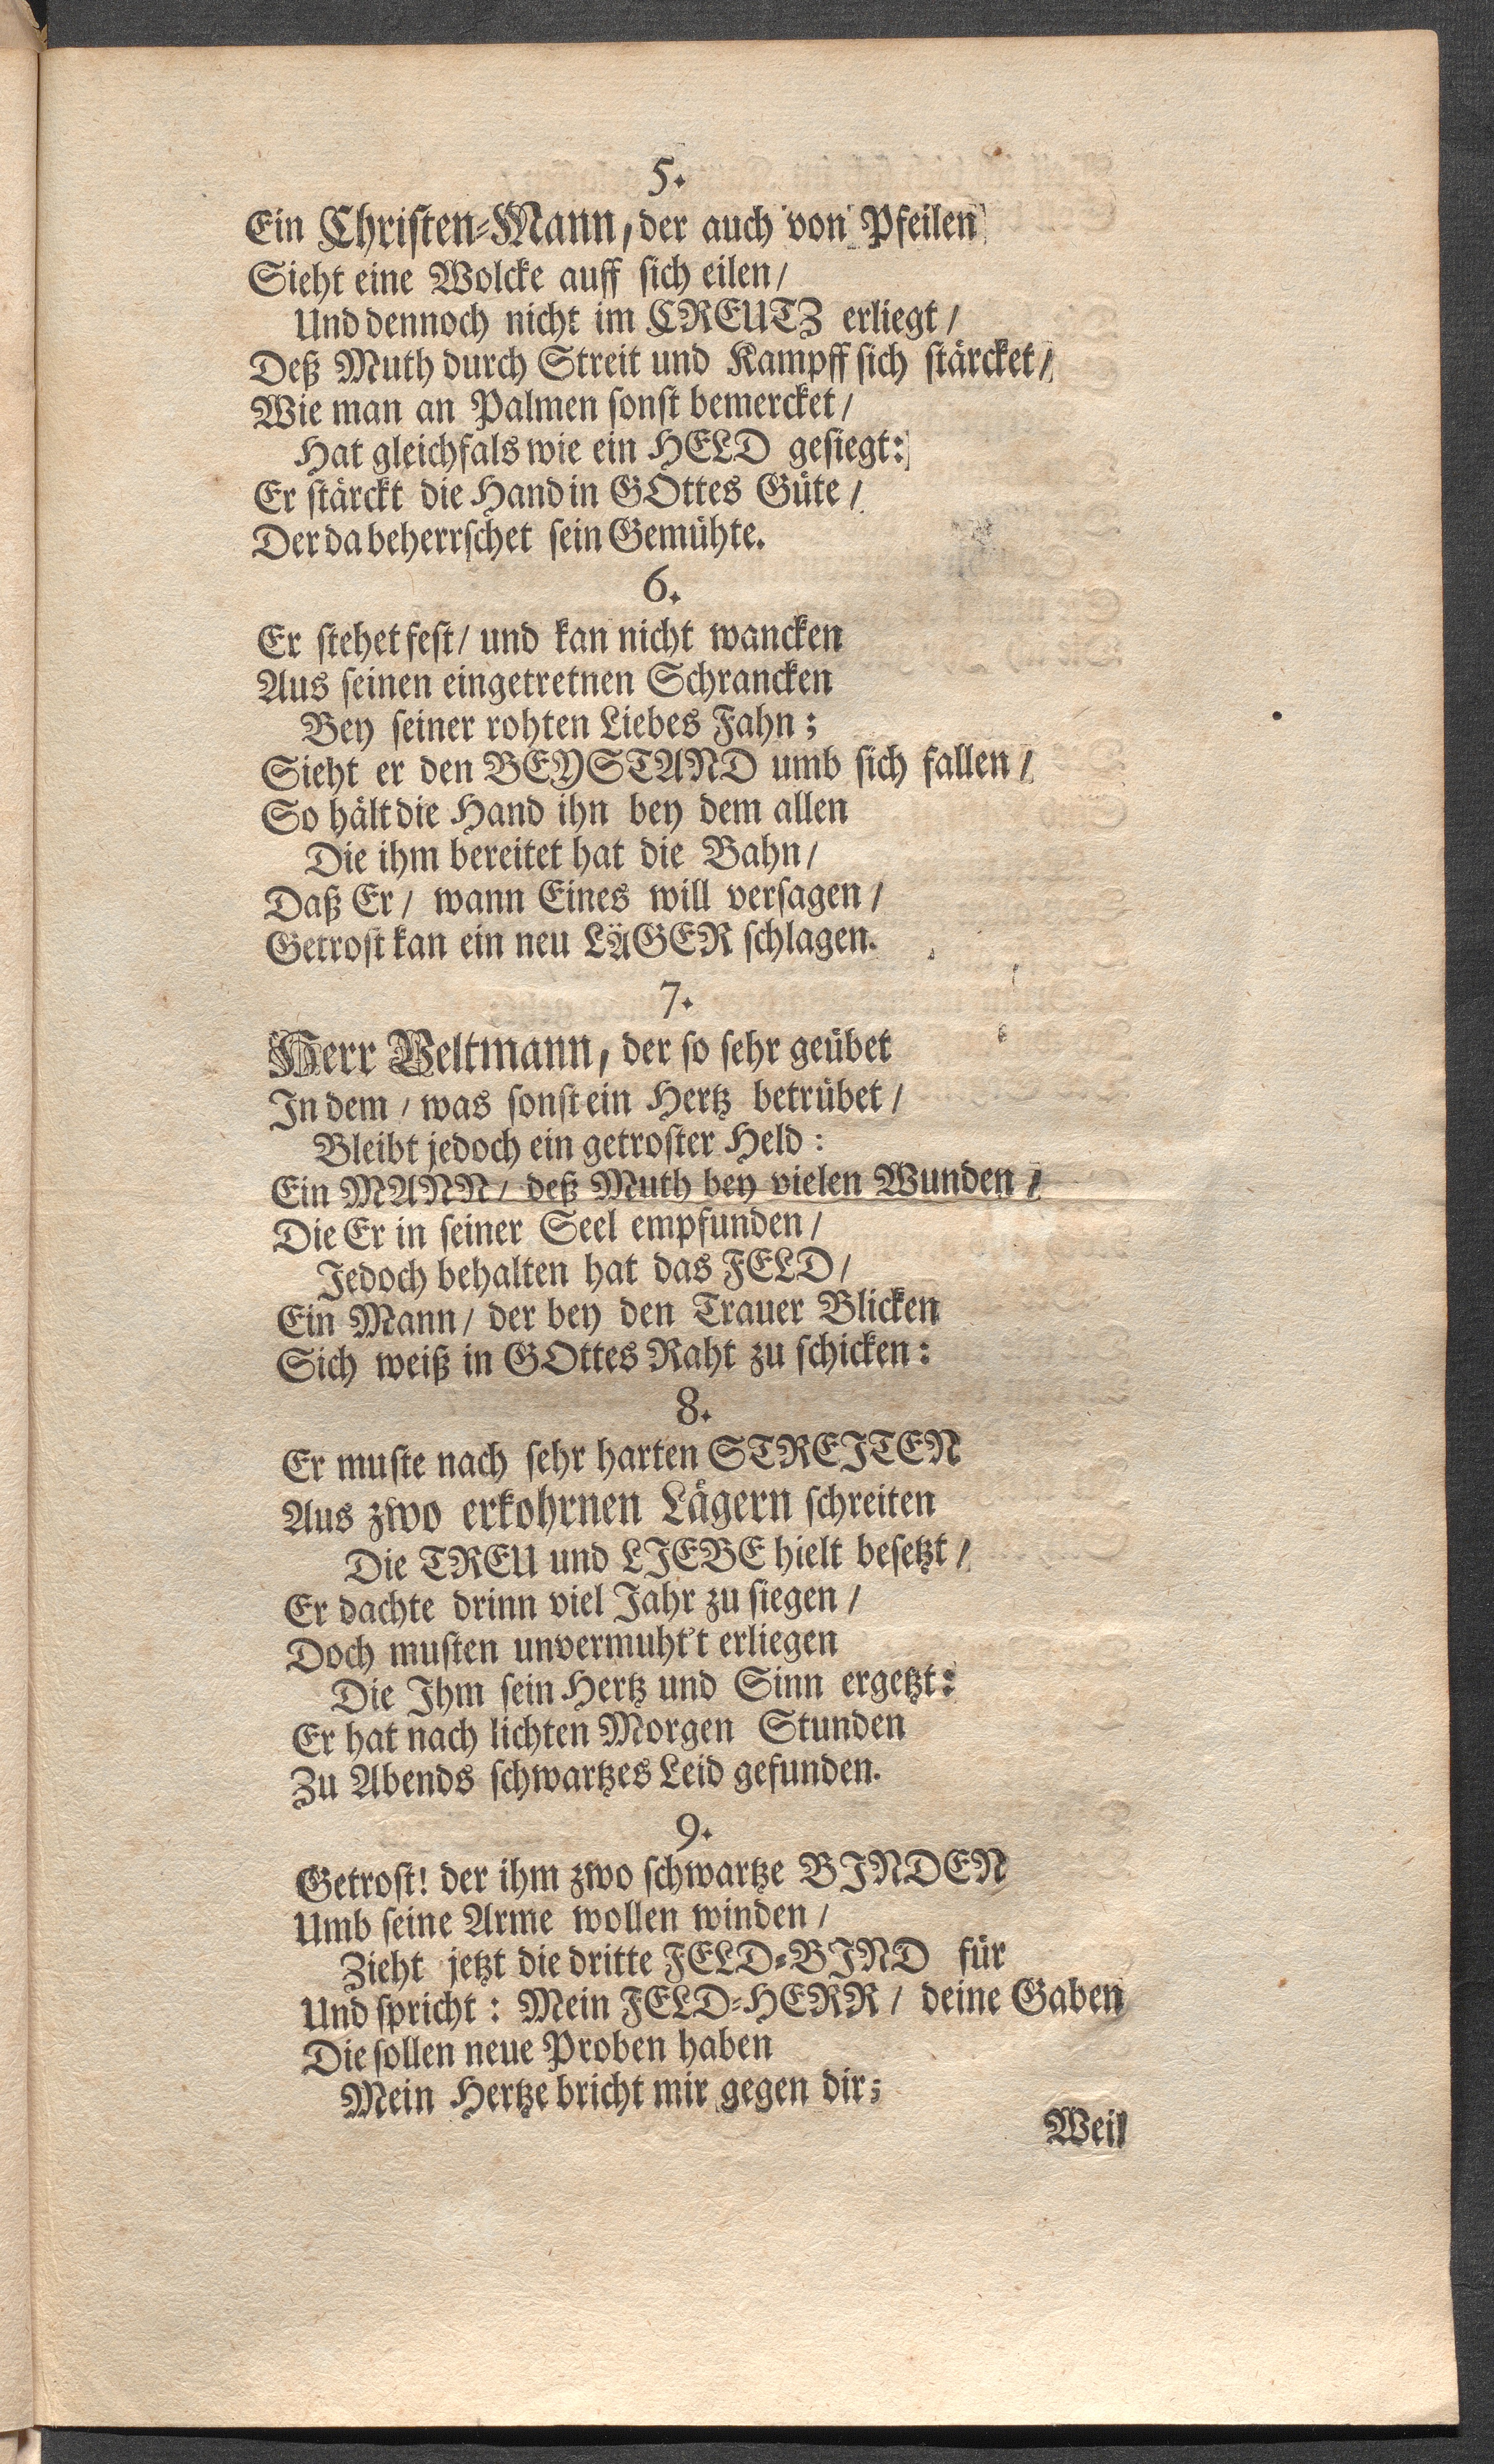 5.
Ein Christen-Mann, der auch von Pfeilen
Sieht eine Wolcke auff sich eilen/
Und dennoch nicht im CREUTZ erliegt/
Deß Muth durch Streit und Kampff sich stärcket/
Wie man an Palmen sonst bemercket/
Hat gleichfals wie ein HELD gesiegt:
Er stärckt die Hand in GOttes Güte/
Der da beherrschet sein Gemühte.
6.
Er stehet fest/ und kan nicht wancken
Aus seinen eingetretnen Schrancken
Bey seiner rohten Liebes Fahn;
Sieht er den BEYSTAND umb sich fallen/
So hält die Hand ihn bey dem allen
Die ihm bereitet hat die Bahn/
Daß Er/ wann Eines will versagen/
Getrost kan ein neu LÄGER schlagen.
7.
Herr Veltmann, der so sehr geübet
In dem/ was sonst ein Hertz betrübet/
Bleibt jedoch ein getroster Held:
Ein MANN/ deß Muth bey vielen Wunden/
Die Er in seiner Seel empfunden/
Jedoch behalten hat das FELD/
Ein Mann/ der bey den Trauer Blicken
Sich weiß in GOttes Raht zu schicken:
8.
Er muste nach sehr harten STREITEN
Aus zwo erkohrnen Lägern schreiten
Die TREU und LIEBE hielt besetzt/
Er dachte drinn viel Jahr zu siegen/
Doch musten unvermuht't erliegen
Die Ihm sein Hertz und Sinn ergetzt:
Er hat nach lichten Morgen Stunden
Zu Abends schwartzes Leid gefunden.
9.
Getrost! der ihm zwo schwartze BINDEN
Umb seine Arme wollen winden/
Zieht jetzt die dritte FELD-BIND für
Und spricht: Mein FELD-HERR/ deine Gaben
Die sollen neue Proben haben
Mein Hertze bricht mir gegen dir;
Weil